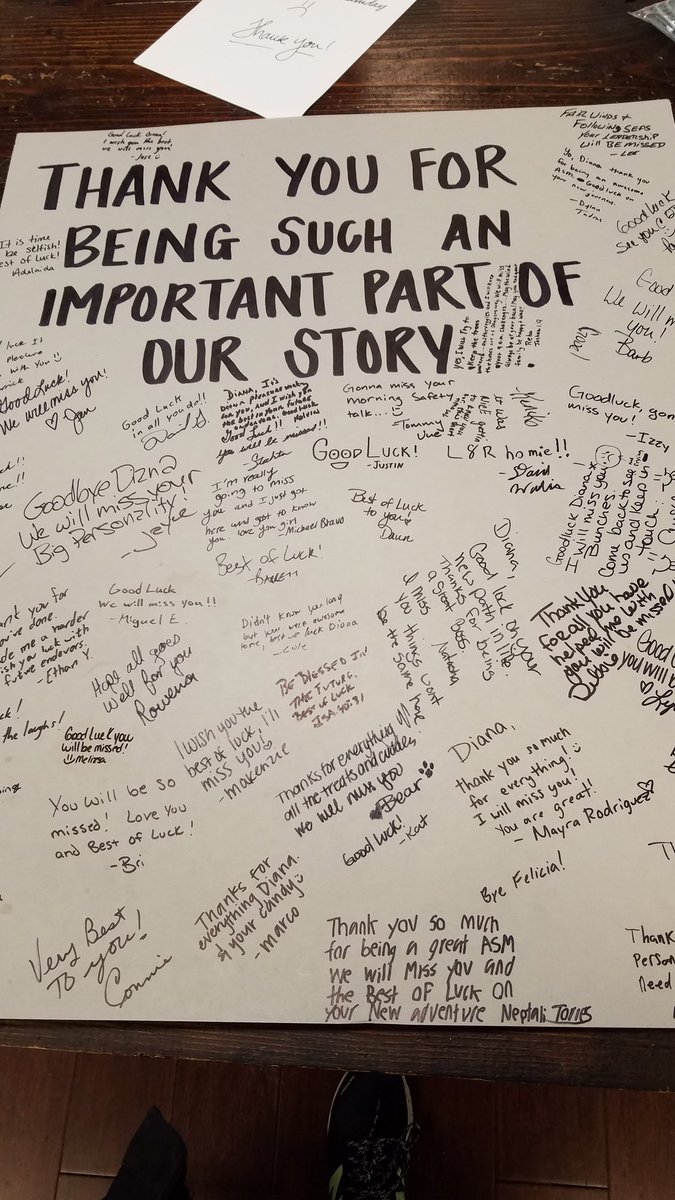 Thank you!
Good Luck Diana!
I wish you the best,
we will miss you!
-Jose
FAIR WINDS &
FOLLOWING SEAS
YOUR LEADERSHIP
WILL BE MISSED
- LEE
THANK YOU FOR
BEING SUCH AN
IMPORTANT PART OF
OUR STORY
Yo, Diana thank you
for being an awesome
ASM. Good luck on
your new journey.
- Dylan
Good luck
See you
It is time
be selfish!
Best of Luck!
Adalaida
Good
We will miss
you!
Barb
luck I
pleasure
with You
Good Luck!
We will miss you!
Jan
Good Luck
in all you do!!
David G.
DIANA, It's
been a pleasure working
for you, and I wish you
the best in your future
Good Luck!! KELVIN
you will be missed!!
Gonna miss your
morning Safety
talk...
-Tommy
GOOD LUCK!
-JUSTIN
L8R homie!!
-David
Goodluck, gon
miss you!
-Izzy
Goodbye Diana
We will miss your
Big Personality!
-Jayce
I'm really
going to miss
you and I just got
here and got to know
you. love you girl
Michael Bravo
Best of Luck
to you!
Dawn
Goodluck Diana
I will miss you
Bunches.
Come back to see
us and keep in
touch.
Best of Luck!
-BARRETT
Diana,
Good luck on your
new path in life.
Thanks for being
a great boss.
I miss
you things wont
be the same here
Natasha
Good Luck
We will miss you!!
-Miguel E.
Didn't know you long
but you were awesome
-Cole
Thank you for
all you have
helped me with
you will be missed!
Debbie
Thank you for
you've done.
made me a harder
wish you luck with
future endeavors.
-Ethan Y.
Hope all goes
well for you
Rowena
BE BLESSED IN
THE FUTURE.
BEST OF LUCK
ISA. 40:31
Good
you will b
the laughs!
Good Luck you
will be missed!
Melissa
I wish you the
best of luck, I'll
miss you
-Makenzie
Thanks for everything!
all the treats and cuddles,
We will miss you
Bear
Good Luck!
-Kat
Diana,
thank you so much
for everything!
I will miss you!
You are great!!
- Mayra Rodriguez
You will be so
missed! Love you
and Best of Luck!
-Bri
Bye Felicia!
Thanks for
everything Diana.
& your candy
-Marco
Very Best
To you!
Connie
Thank you so much
for being a great ASM
We will Miss you and
the Best of Luck On
your New adventure Neptali Torres
Thank
Person
Need